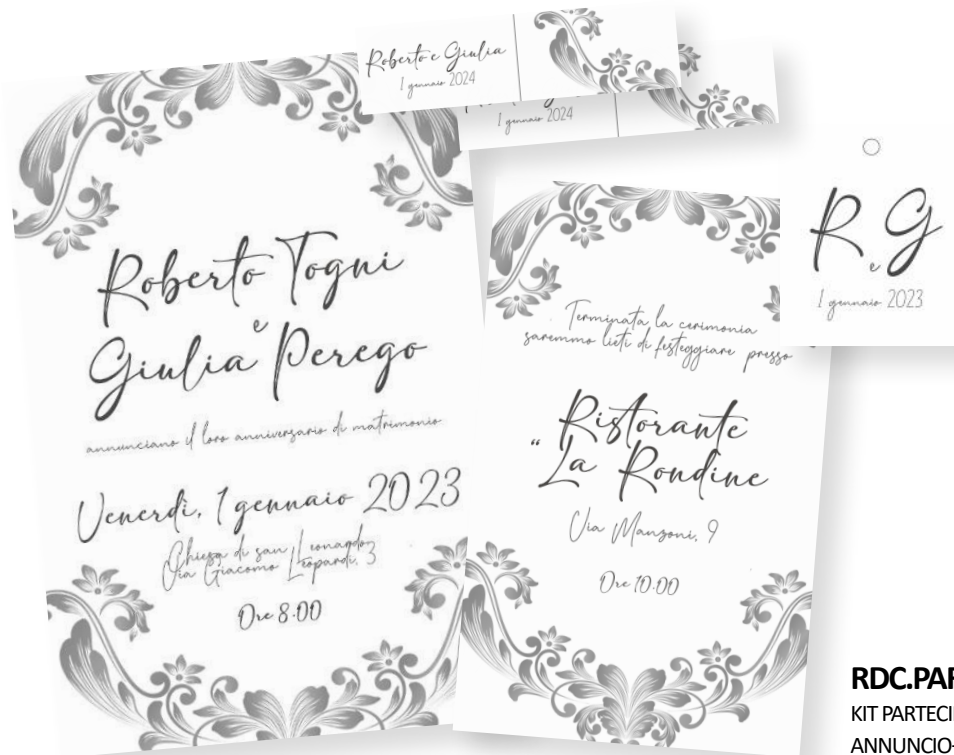 Roberto e Giulia
1 gennaio 2024
1 gennaio 2024
R e G
1 gennaio 2023
Roberto Togni
e
Giulia Perego
annunciano il loro anniversario di matrimonio
Venerdì, 1 gennaio 2023
Chiesa di san Leonardo
Via Giacomo Leopardi, 3
Ore 8.00
Terminata la cerimonia
saremmo lieti di festeggiare presso
Ristorante
" La Rondine
Via Manzoni, 9
Ore 10.00
RDC.PAR
KIT PARTECI
ANNUNCIO-